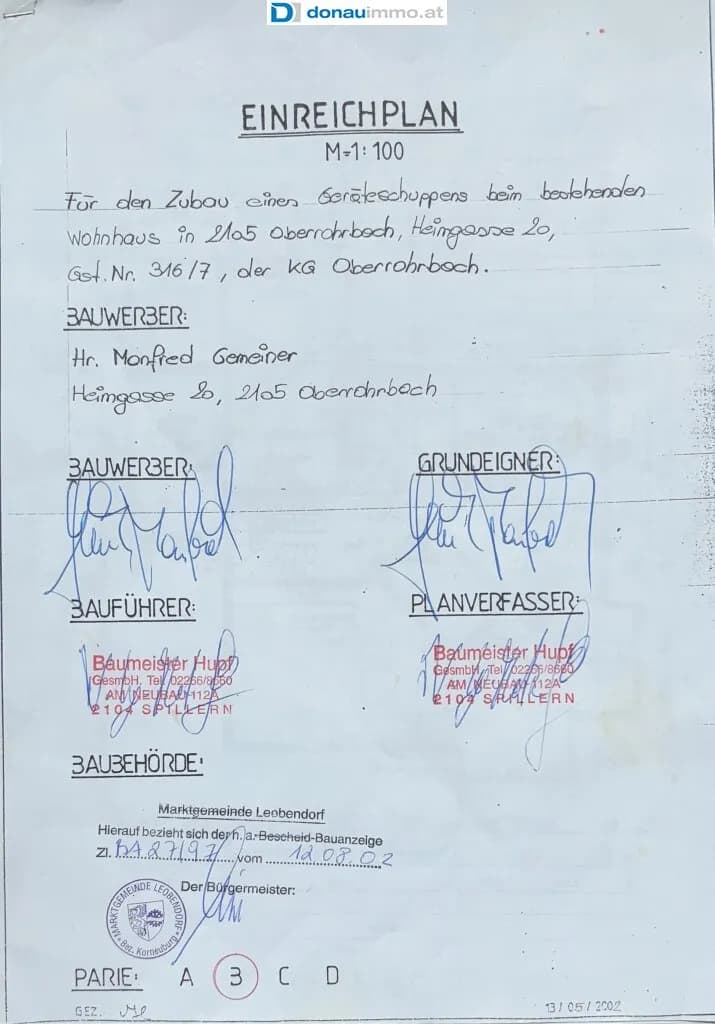 donauimmo.at
EINREICHPLAN
M=1:100
Für den Zubau eines Geräteschuppens beim bestehenden
Wohnhaus in 2105 Oberrohrbach, Heimgasse 20,
Gst. Nr. 316/7, der KG Oberrohrbach.
BAUWERBER:
Hr. Manfred Gemeiner
Heimgasse 20, 2105 Oberrohrbach
BAUWERBER:
GRUNDEIGNER:
BAUFÜHRER:
PLANVERFASSER:
Baumeister Hupf
GesmbH, Tel 02266/8660
AM NEUBAU 112A
2104 SPILLERN
Baumeister Hupf
GesmbH, Tel 02266/8660
AM NEUBAU 112A
2104 SPILLERN
BAUBEHÖRDE:
Marktgemeinde Leobendorf
Hierauf bezieht sich der h. a. Bescheid-Bauanzeige
Zl. BA 27/97 vom 12.08.02
Der Bürgermeister:
MARKTGEMEINDE LEOBENDORF
Bez. Korneuburg
PARIE: A B C D
GEZ.
13/05/2002